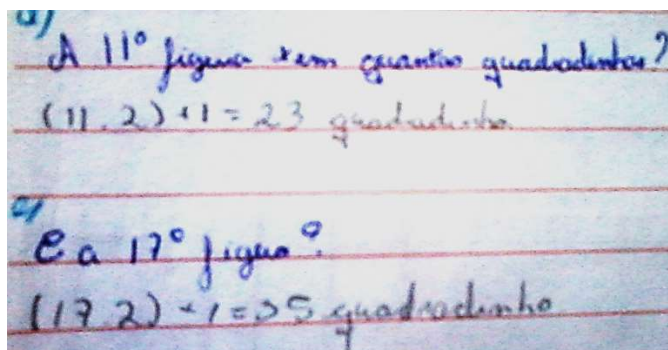 d)
A 11º figura tem quantos quadradinhos?
(11.2)+1=23 quadradinho
e)
e a 17º figura?
(17.2)+1=35 quadradinho